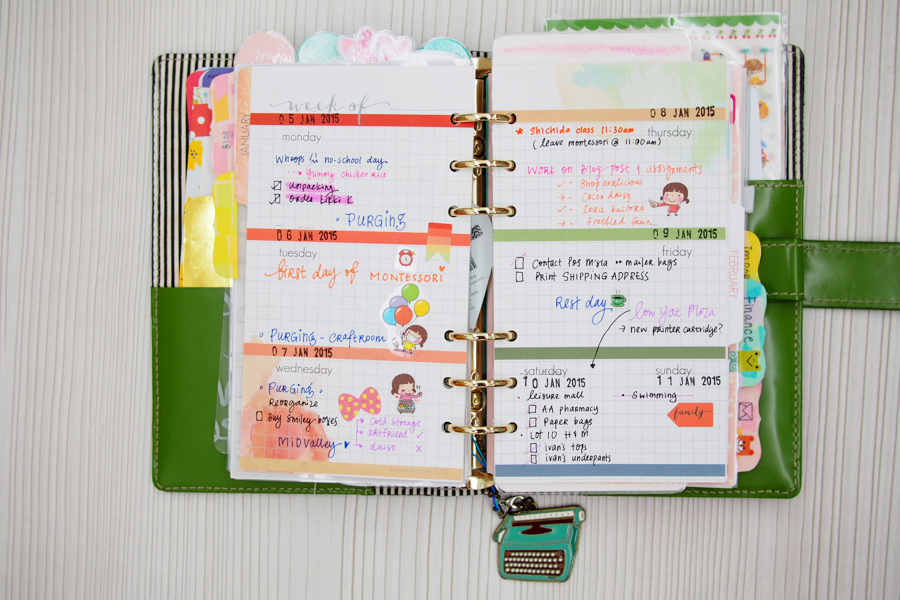 week of
JANUARY
05 JAN 2015
monday
Whoops! no-school day
Yummy chicken rice
unpacking
PURGING
06 JAN 2015
tuesday
first day of MONTESSORI
PURGING - CRAFTROOM
07 JAN 2015
wednesday
PURGING
Reorganize
Buy smiley boxes
MIDVALLEY
cold storage
artfriend ✓
daiso X
08 JAN 2015
★ Shichida class 11:30am
thursday
(leave montessori @ 11:00am)
WORK ON Blog post & assignments
Cocoa daisy
09 JAN 2015
friday
Contact Pos Msia mailer bags
Print SHIPPING ADDRESS
Rest day
Low Yat Plaza
→ new printer cartridge?
FEBRUARY
saturday
10 JAN 2015
leisure mall
AA pharmacy
Paper bags
Lot 10 H&M
ivan's tops
ivan's underpants
sunday
11 JAN 2015
Swimming
family
Finance
Blog